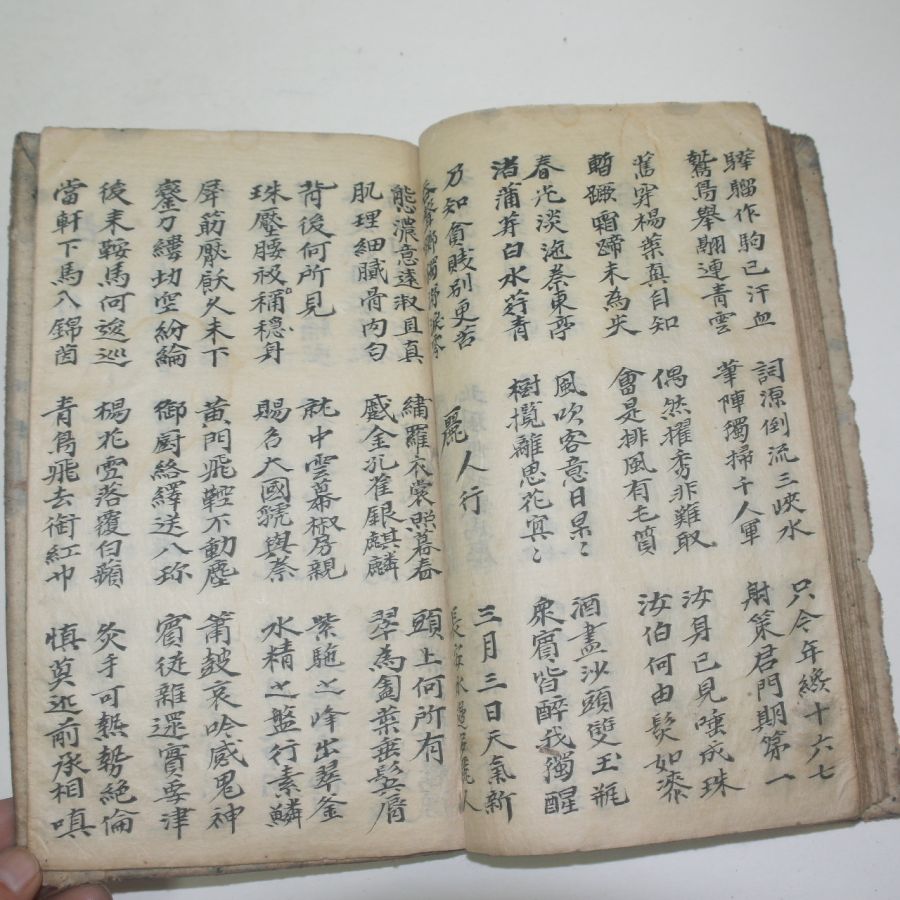 驊騮作駒已汗血
鷙鳥舉翮連青雲
詞源倒流三峽水
筆陣獨掃千人軍
只今年纔十六七
射策君門期第一
舊穿楊葉真自知
暫蹶霜蹄未為失
偶然擢秀非難取
會是排風有毛質
汝身已見唾成珠
汝伯何由髮如漆
春光淡沲秦東亭
渚蒲芽白水荇青
風吹客意日杲〻
樹攪離思花冥〻
酒盡沙頭雙玉瓶
衆賓皆醉我獨醒
乃知貧賤別更苦
吞聲躑躅涕淚零
麗人行
三月三日天氣新
長安水邊多麗人
態濃意遠淑且真
肌理細膩骨肉匀
繡羅衣裳照暮春
蹙金孔雀銀麒麟
頭上何所有
翠為㔩葉垂鬂脣
背後何所見
珠壓腰衱稱穩身
就中雲幕椒房親
賜名大國虢與秦
紫駝之峰出翠釜
水精之盤行素鱗
犀筯厭飫久未下
鑾刀縷切空紛綸
黃門飛鞚不動塵
御厨絡繹送八珎
簫鼓哀吟感鬼神
賓從雜遝實要津
後来鞍馬何逡巡
當軒下馬入錦茵
楊花雪落覆白蘋
青鳥飛去銜紅巾
炙手可熱勢絕倫
慎莫近前承相嗔